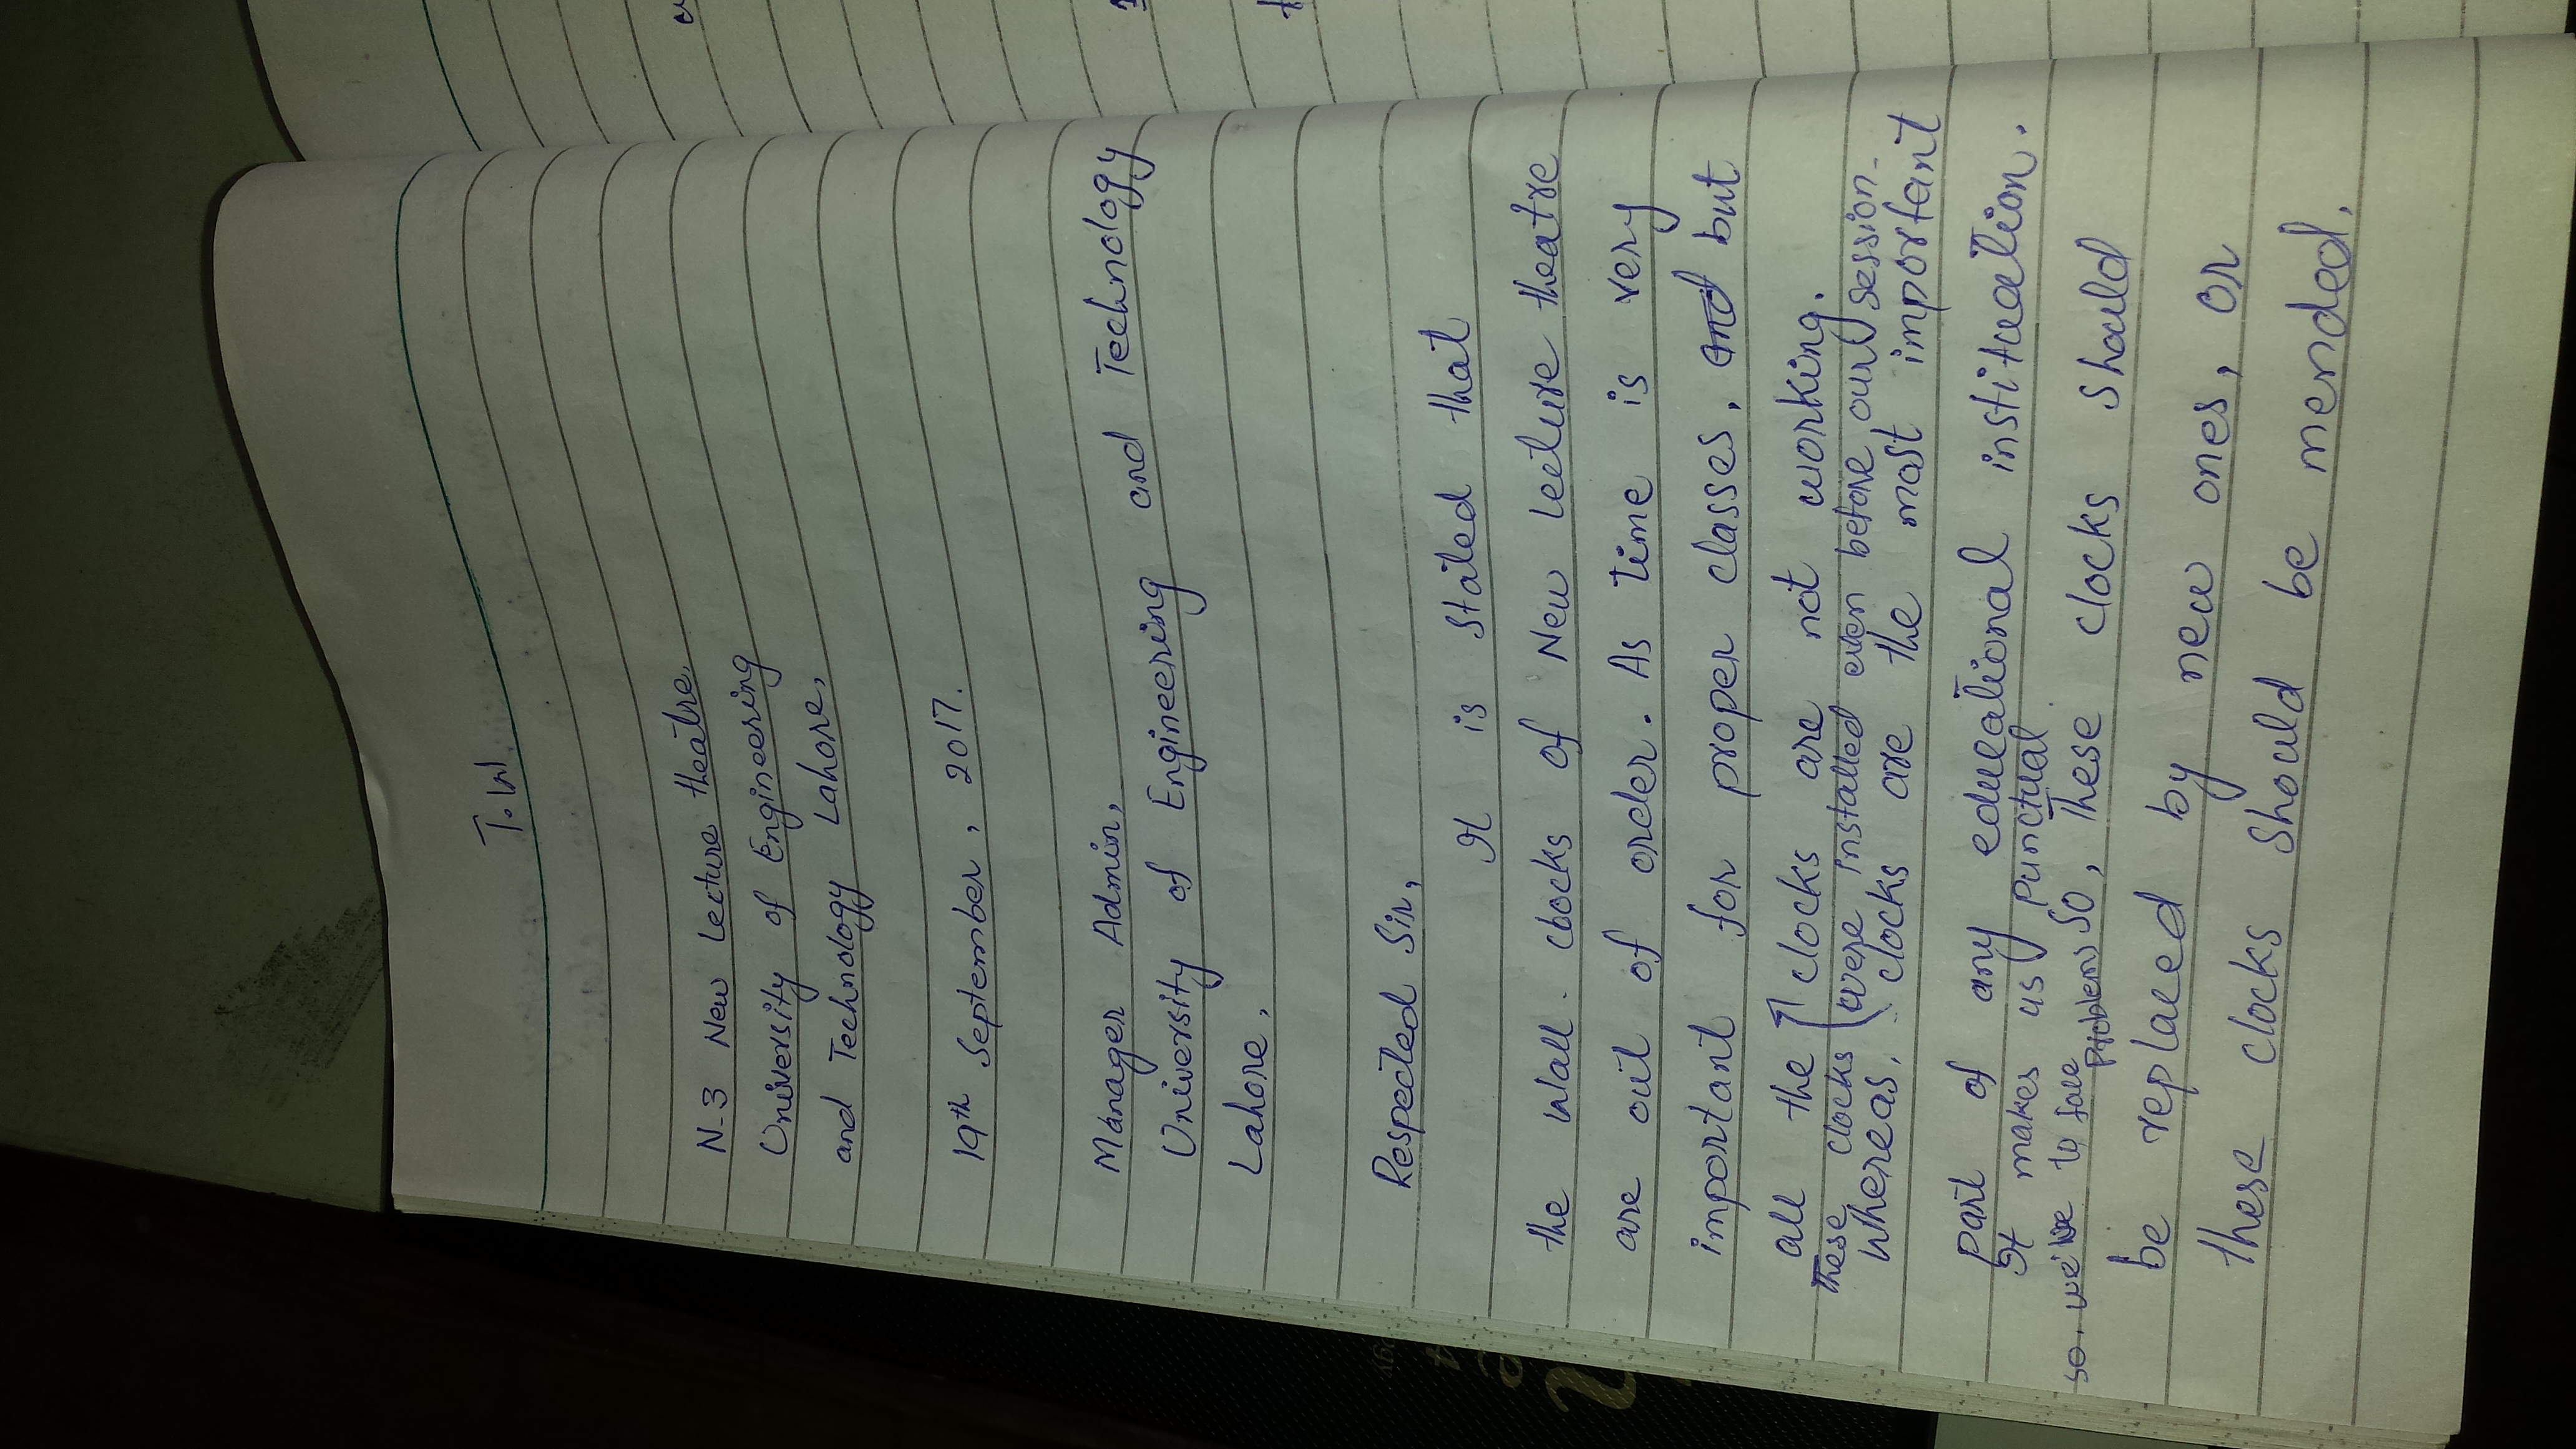 T.W
N-3 New Lecture theatre,
University of Engineering
and Technology Lahore,
19th September, 2017.
Manager Admin,
University of Engineering and Technology
Lahore,
Respected Sir,
It is stated that
the wall clocks of New Lecture theatre
are out of order. As time is very
important for proper classes, and but
all the clocks are not working.
These clocks were installed even before our session.
Whereas, clocks are the most important
part of any educational instituation.
It makes us punctual.
so, we've to face problems So, These clocks should
be replaced by new ones, or
these clocks should be mended.